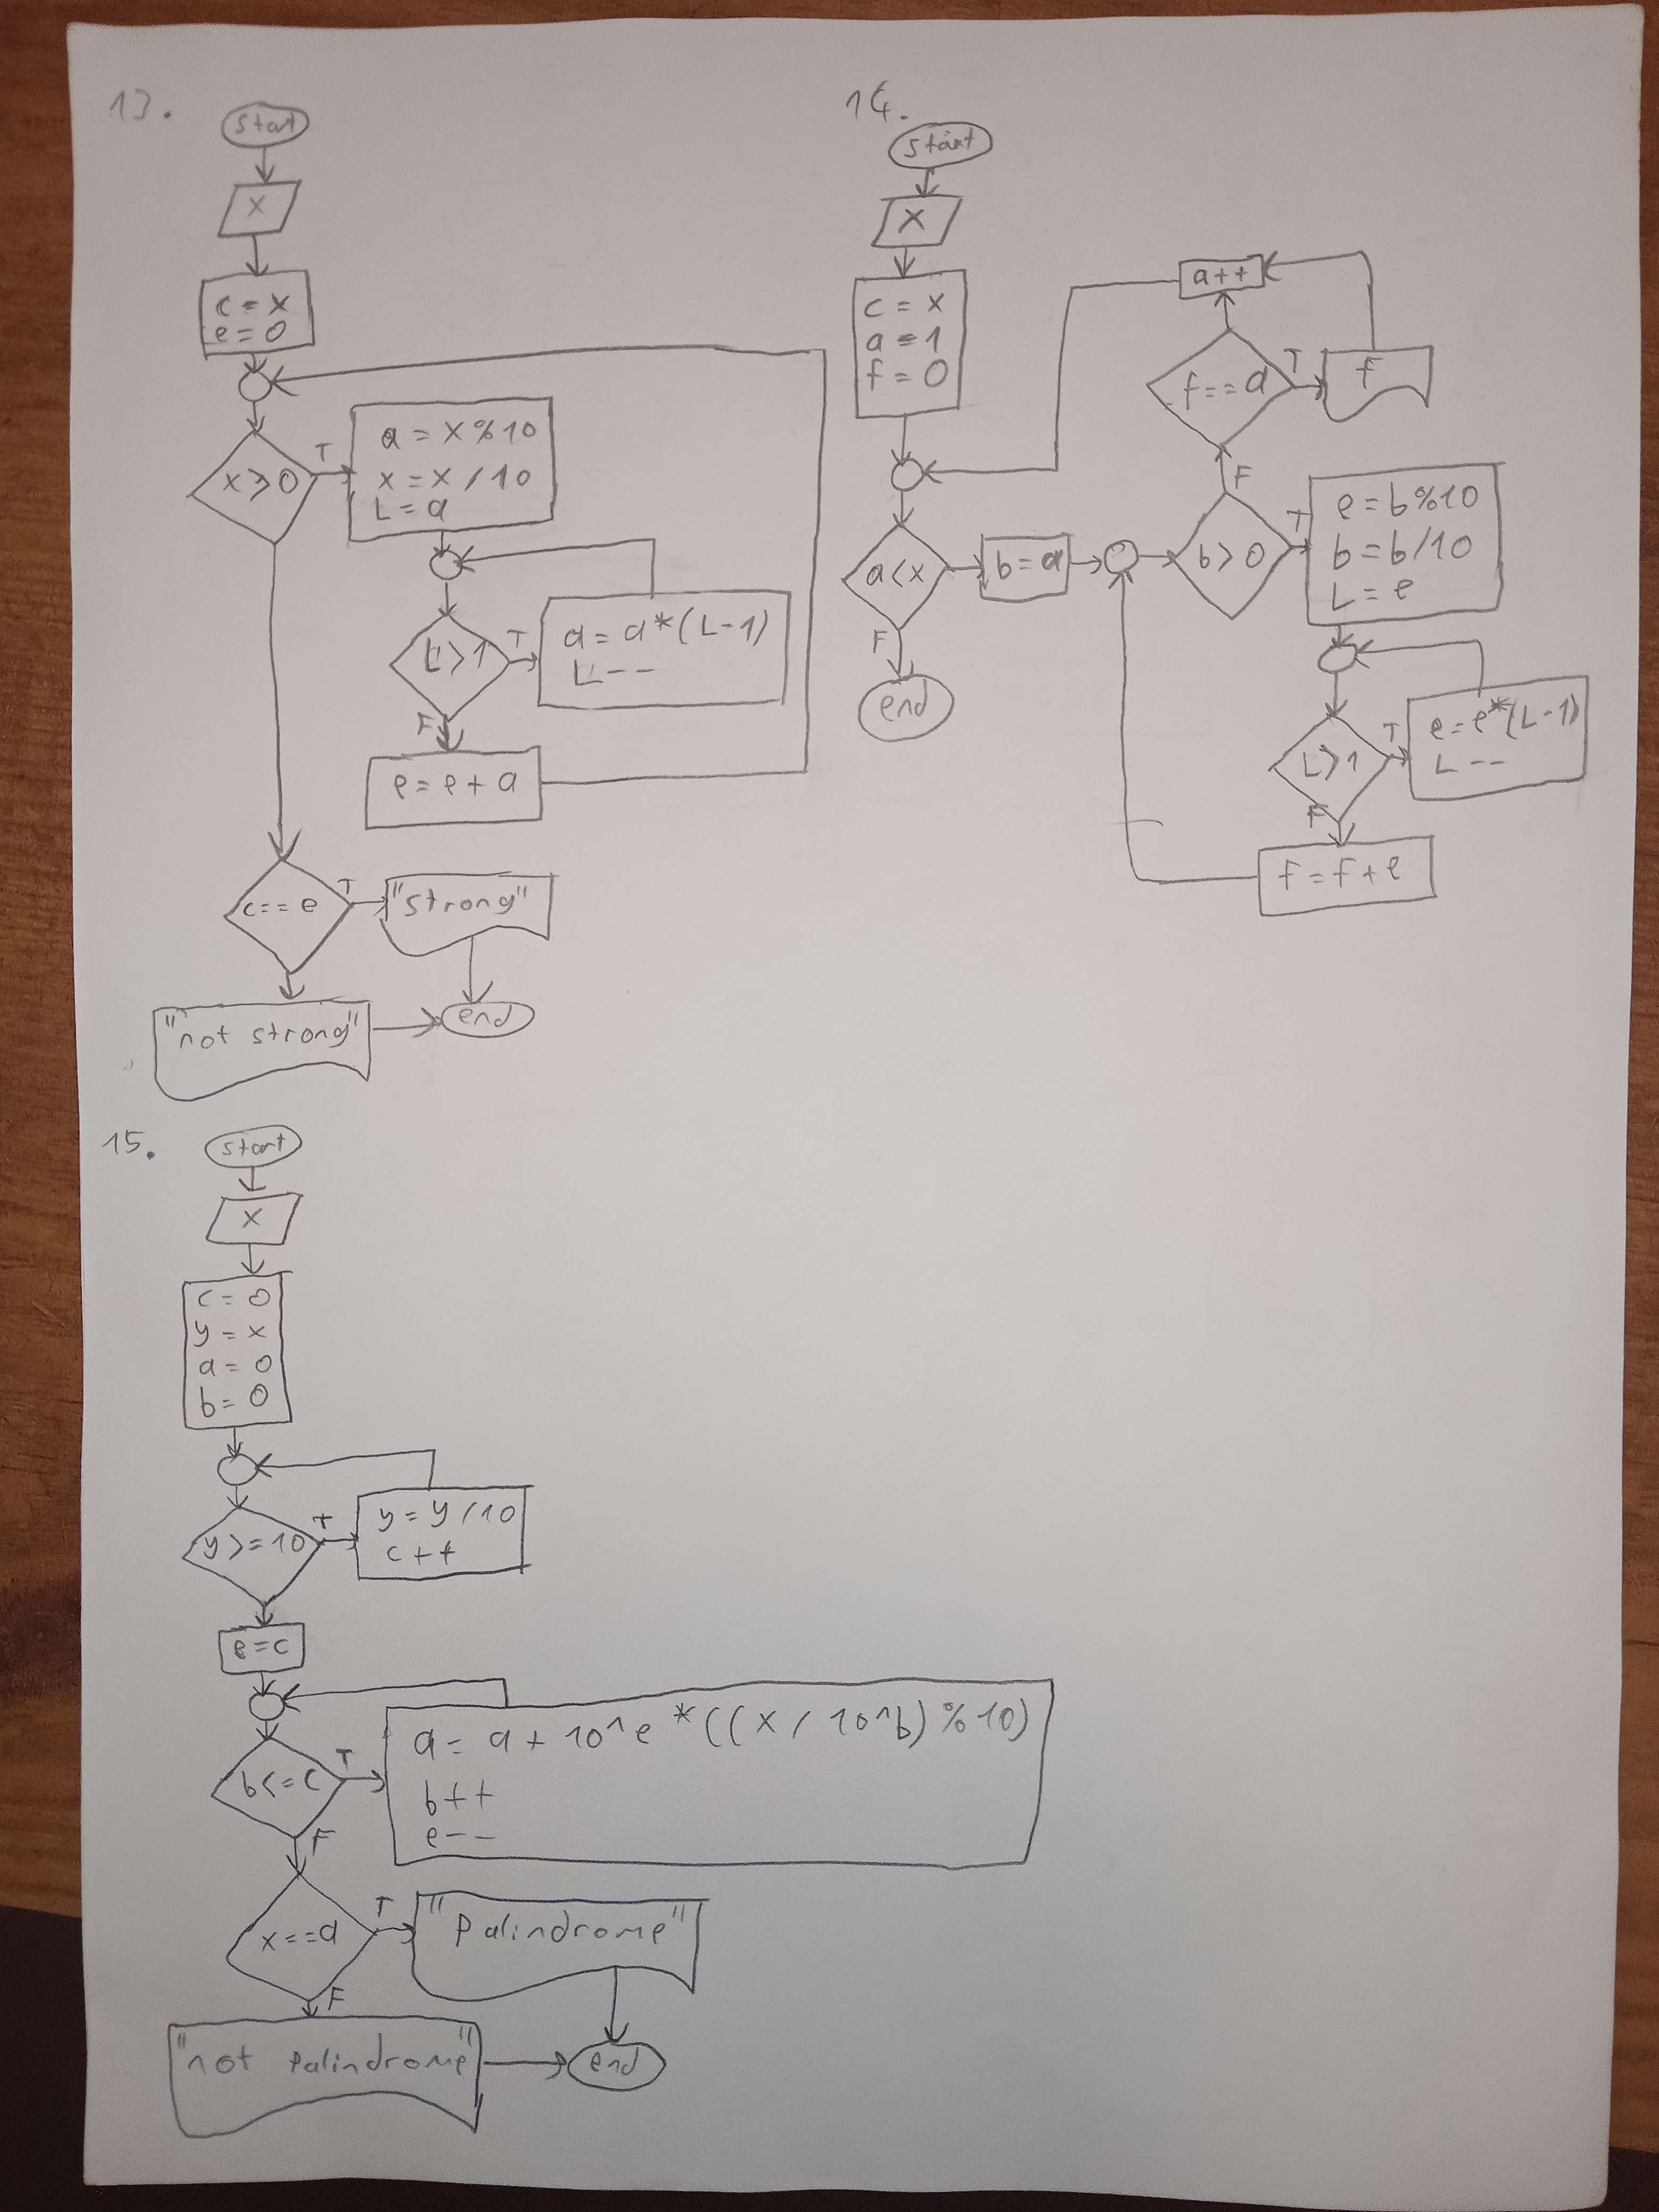 13.
start
x
c = x
e = 0
x > 0
T
a = x % 10
x = x / 10
L = a
L > 1
T
a = a * (L-1)
L --
F
e = e + a
c == e
T
"strong"
"not strong"
end
14.
start
x
c = x
a = 1
f = 0
a < x
F
end
b = a
b > 0
T
e = b % 10
b = b / 10
L = e
L > 1
T
e = e * (L-1)
L --
F
f = f + e
F
f == a
T
f
a ++
15.
start
x
c = 0
y = x
a = 0
b = 0
y >= 10
T
y = y / 10
c ++
e = c
b <= c
T
a = a + 10^e * ((x / 10^b) % 10)
b ++
e --
F
x == a
T
"Palindrome"
F
"not Palindrome"
end